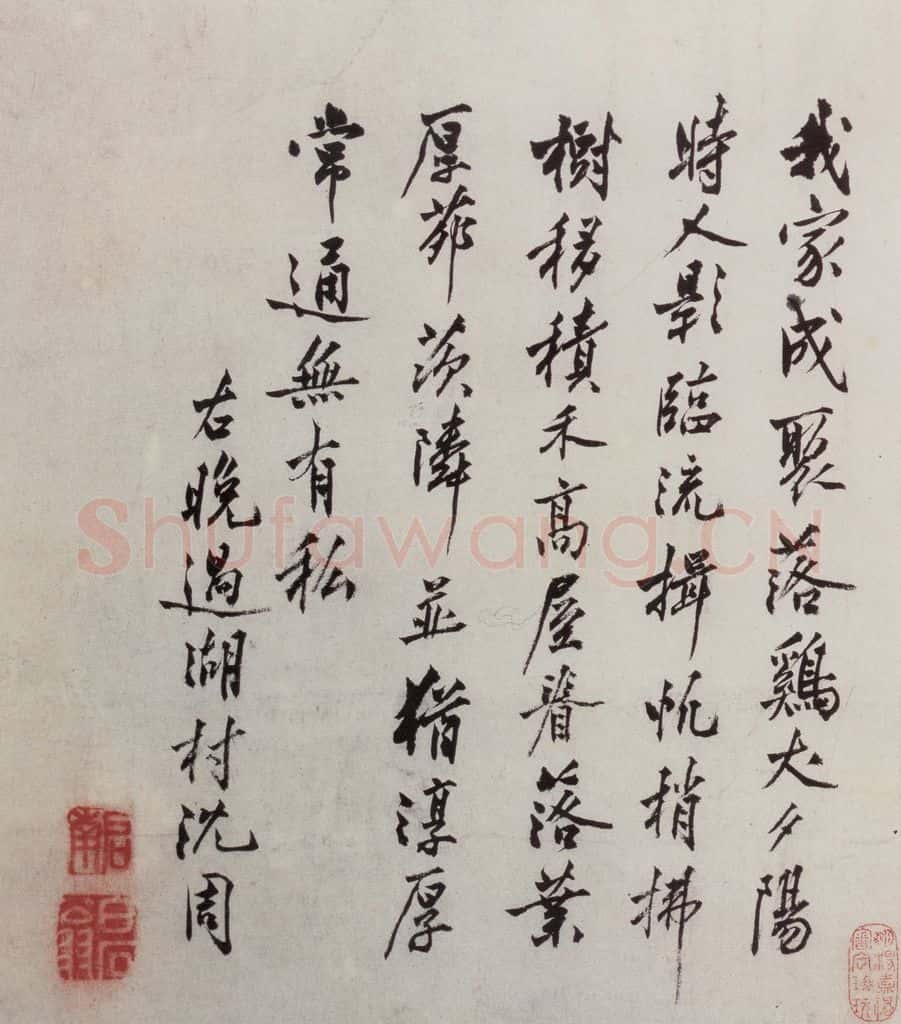 我家成聚落鷄犬夕陽
時人影臨流攝帆梢拂
樹移積禾高屋脊落葉
厚茆茨隣並猶淳厚
常通無有私
右晚過湖村沈周
啓南
白石翁
Shufawang.CN